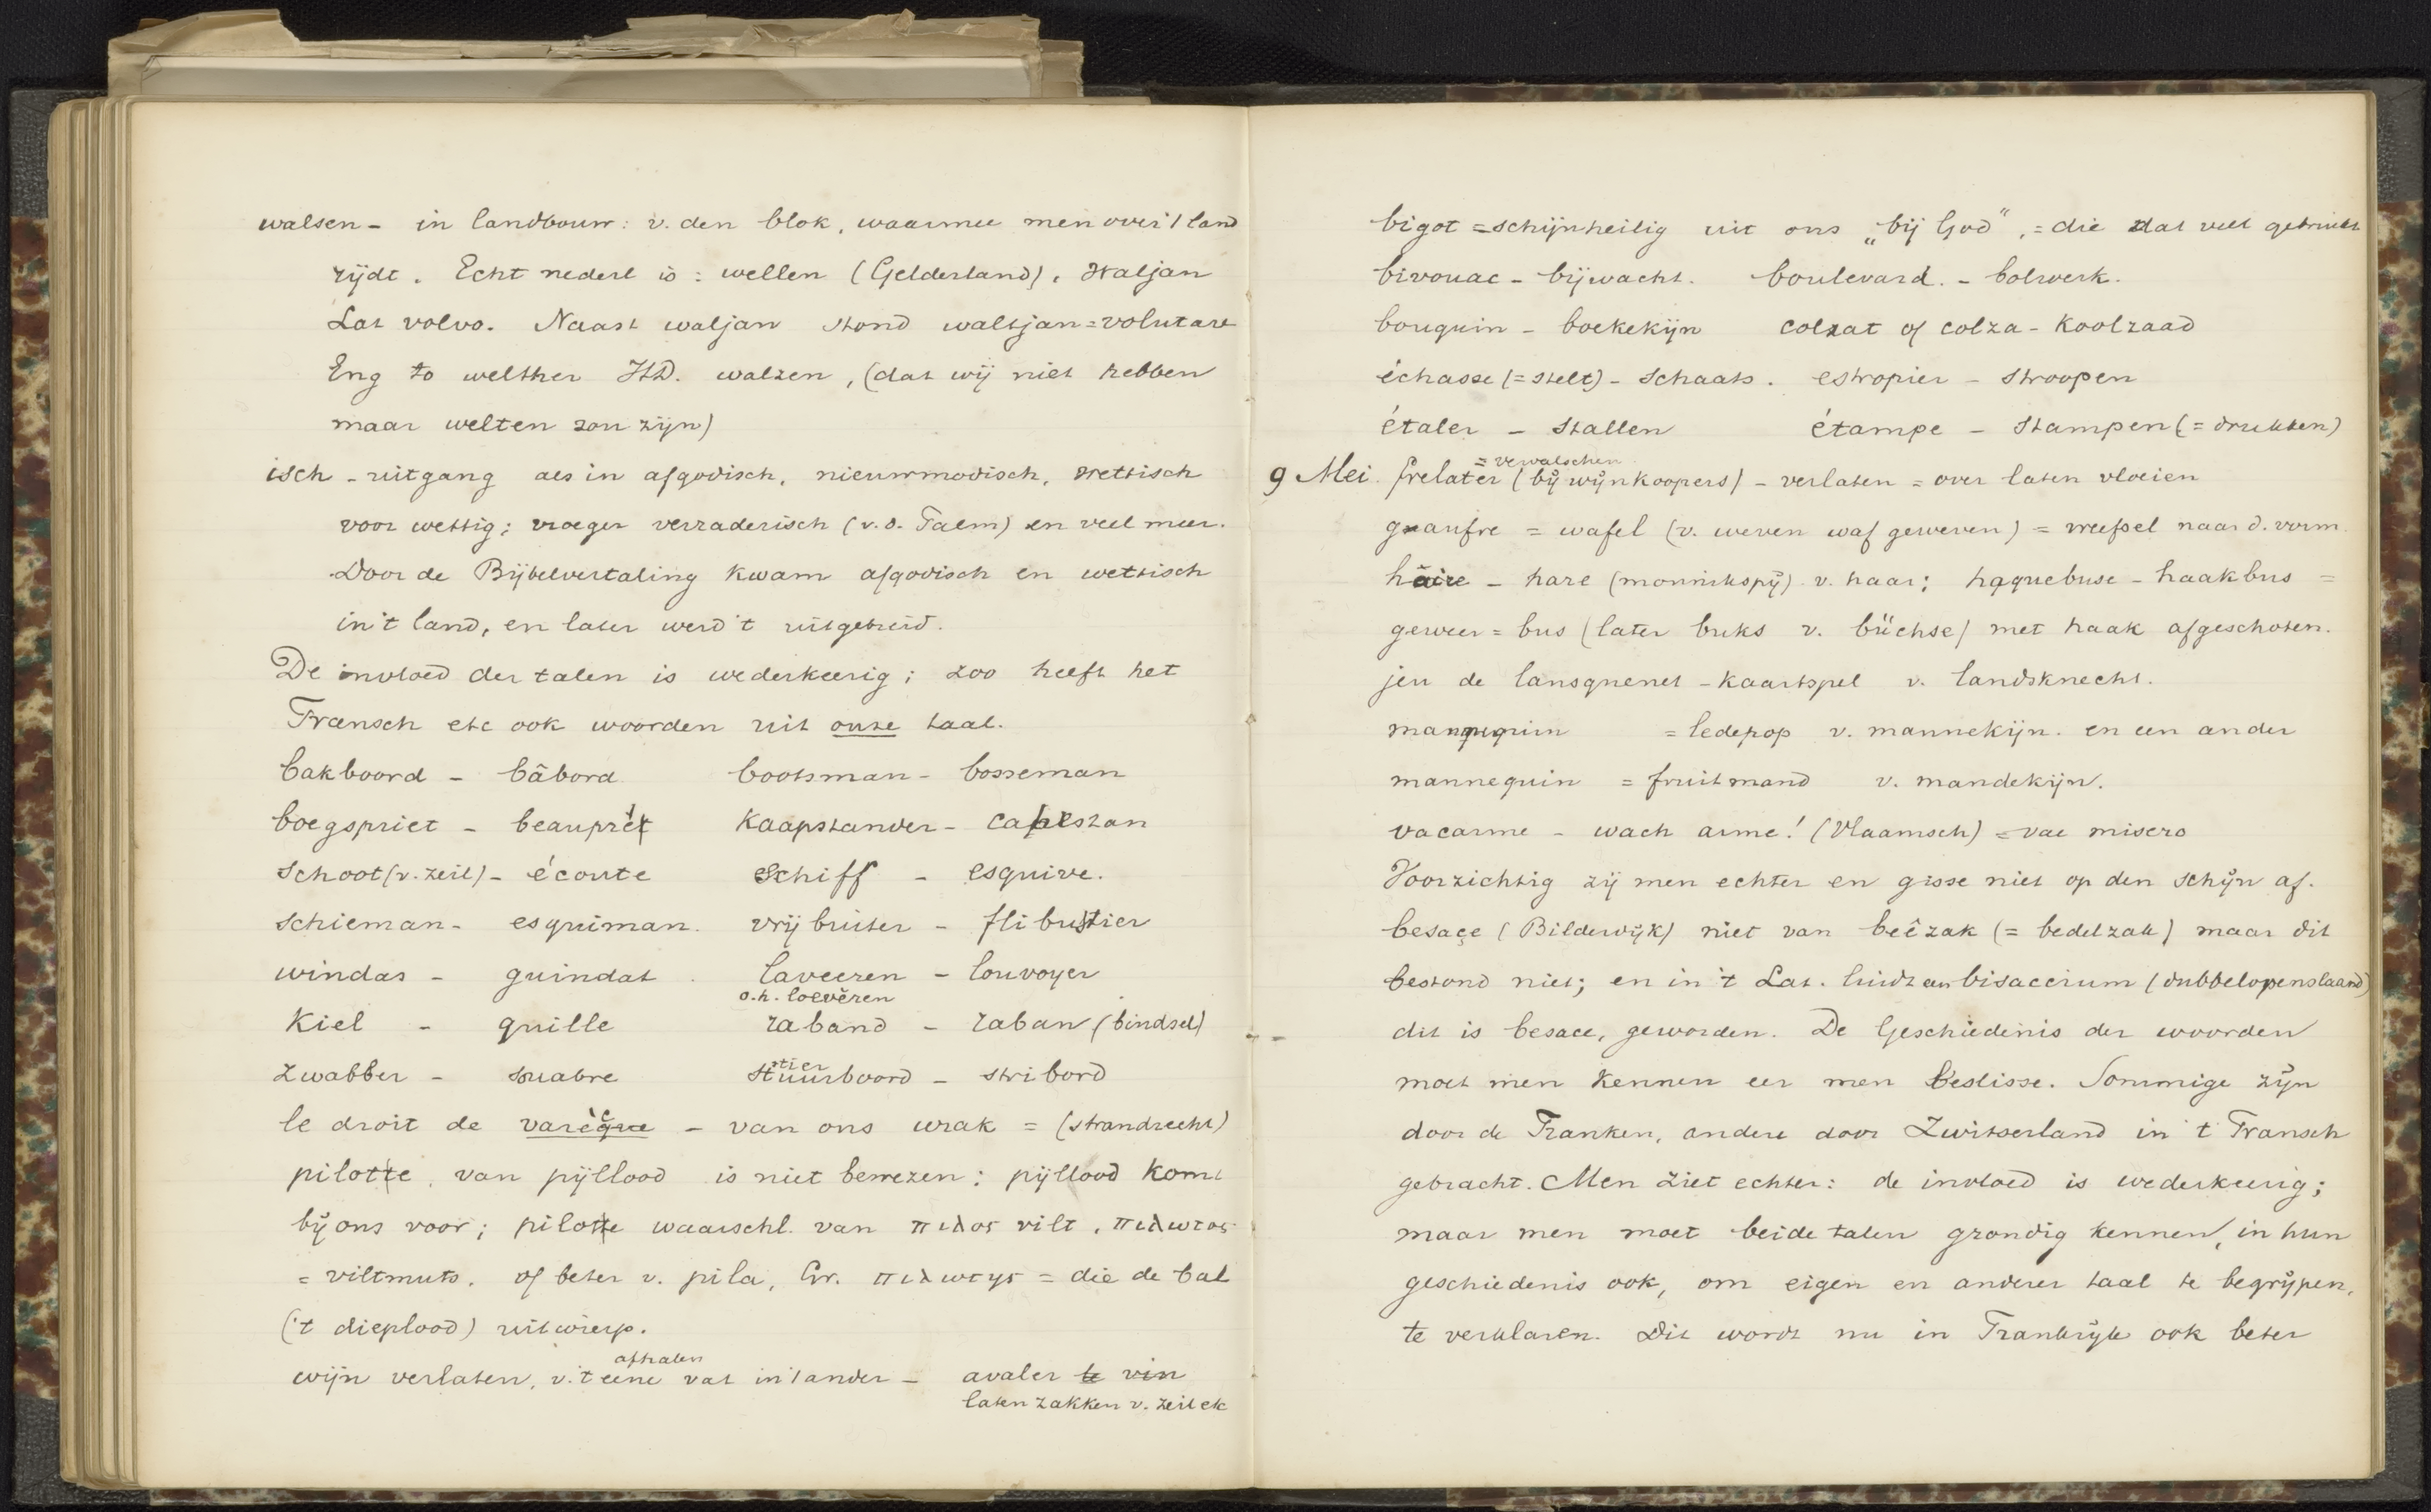 walsen - in landbouw: v. den blok, waarmee men over 't land
rijdt. Echt nederl is: wellen (Gelderland). Waljan
Lat volvo. Naast waljan stond waltjan = volutare
Eng to welther HD. walzen, (dat wij niet hebben
maar welten zou zijn)
isch - uitgang als in afgodisch, nieuwmodisch, wettisch
voor wettig; vroeger verraderisch (v.d. Palm) en veel meer.
Door de Bijbelvertaling kwam afgodisch en wettisch
in 't land, en later werd 't uitgebreid.
De invloed der talen is wederkeerig; zoo heeft het
Fransch etc ook woorden uit onze taal.
bakboord - bâbord bootsman - bosseman
boegspriet - beaupré kaapstander - cabestan
schoot (v. zeil) - écoute schiff - esquive.
schieman - esquiman. vrijbuiter - flibustier
windas - guindat. laveeren - louvoyer
o.h. loevĕren
kiel - quille raband - raban (bindsel)
stier
zwabber - suabre stuurboord - stribord
le droit de varèque - van ons wrak = (strandrecht)
pilotte, van pijllood is niet bewezen: pijllood komt
bij ons voor; pilote waarschl. van πιλος vilt, πιλωτος
= viltmuts. of beter v. pila, Gr. πιλωτης = die de bal
('t dieplood) uitwierp.
aftalen
wijn verlaten, v. 't eene vat in 't ander - avaler le vin
laten zakken v. zeil etc
bigot = schijnheilig uit ons „bij God", = die dat veel gebruikt
bivouac - bijwacht. boulevard. - bolwerk.
bouquin - boekekijn colzat of colza - koolzaad
échasse (= stelt) - schaats. estropier - stroopen
étaler - stallen étampe - stampen (= drukken)
= vervalschen
9 Mei. frelater (bij wijnkoopers) - verlaten = over laten vloeien
gaufre = wafel (v. weven waf geweven) = weefsel naar d. vorm.
haire - hare (monnikspij) v. haar; haquebuse - haakbus =
geweer = bus (later buks v. büchse) met haak afgeschoten.
jeu de lansquenet - kaartspel v. landsknecht.
mannequin = ledepop v. mannekijn. en een ander
mannequin = fruitmand v. mandekijn.
vacarme - wach arme! (Vlaamsch) = vae misero
Voorzichtig zij men echter en gisse niet op den schijn af.
besace (Bilderdijk) niet van beêzak (= bedelzak) maar dit
bestond niet; en in 't Lat. luidt een bisaccium (dubbelopenslaand)
dit is besace, geworden. De Geschiedenis der woorden
moet men kennen eer men beslisse. Sommige zijn
door de Franken, andere door Zwitserland in 't Fransch
gebracht. Men ziet echter: de invloed is wederkeerig;
maar men moet beide talen grondig kennen, in hun
geschiedenis ook, om eigen en anderer taal te begrijpen,
te verklaren. Dit wordt nu in Frankrijk ook beter